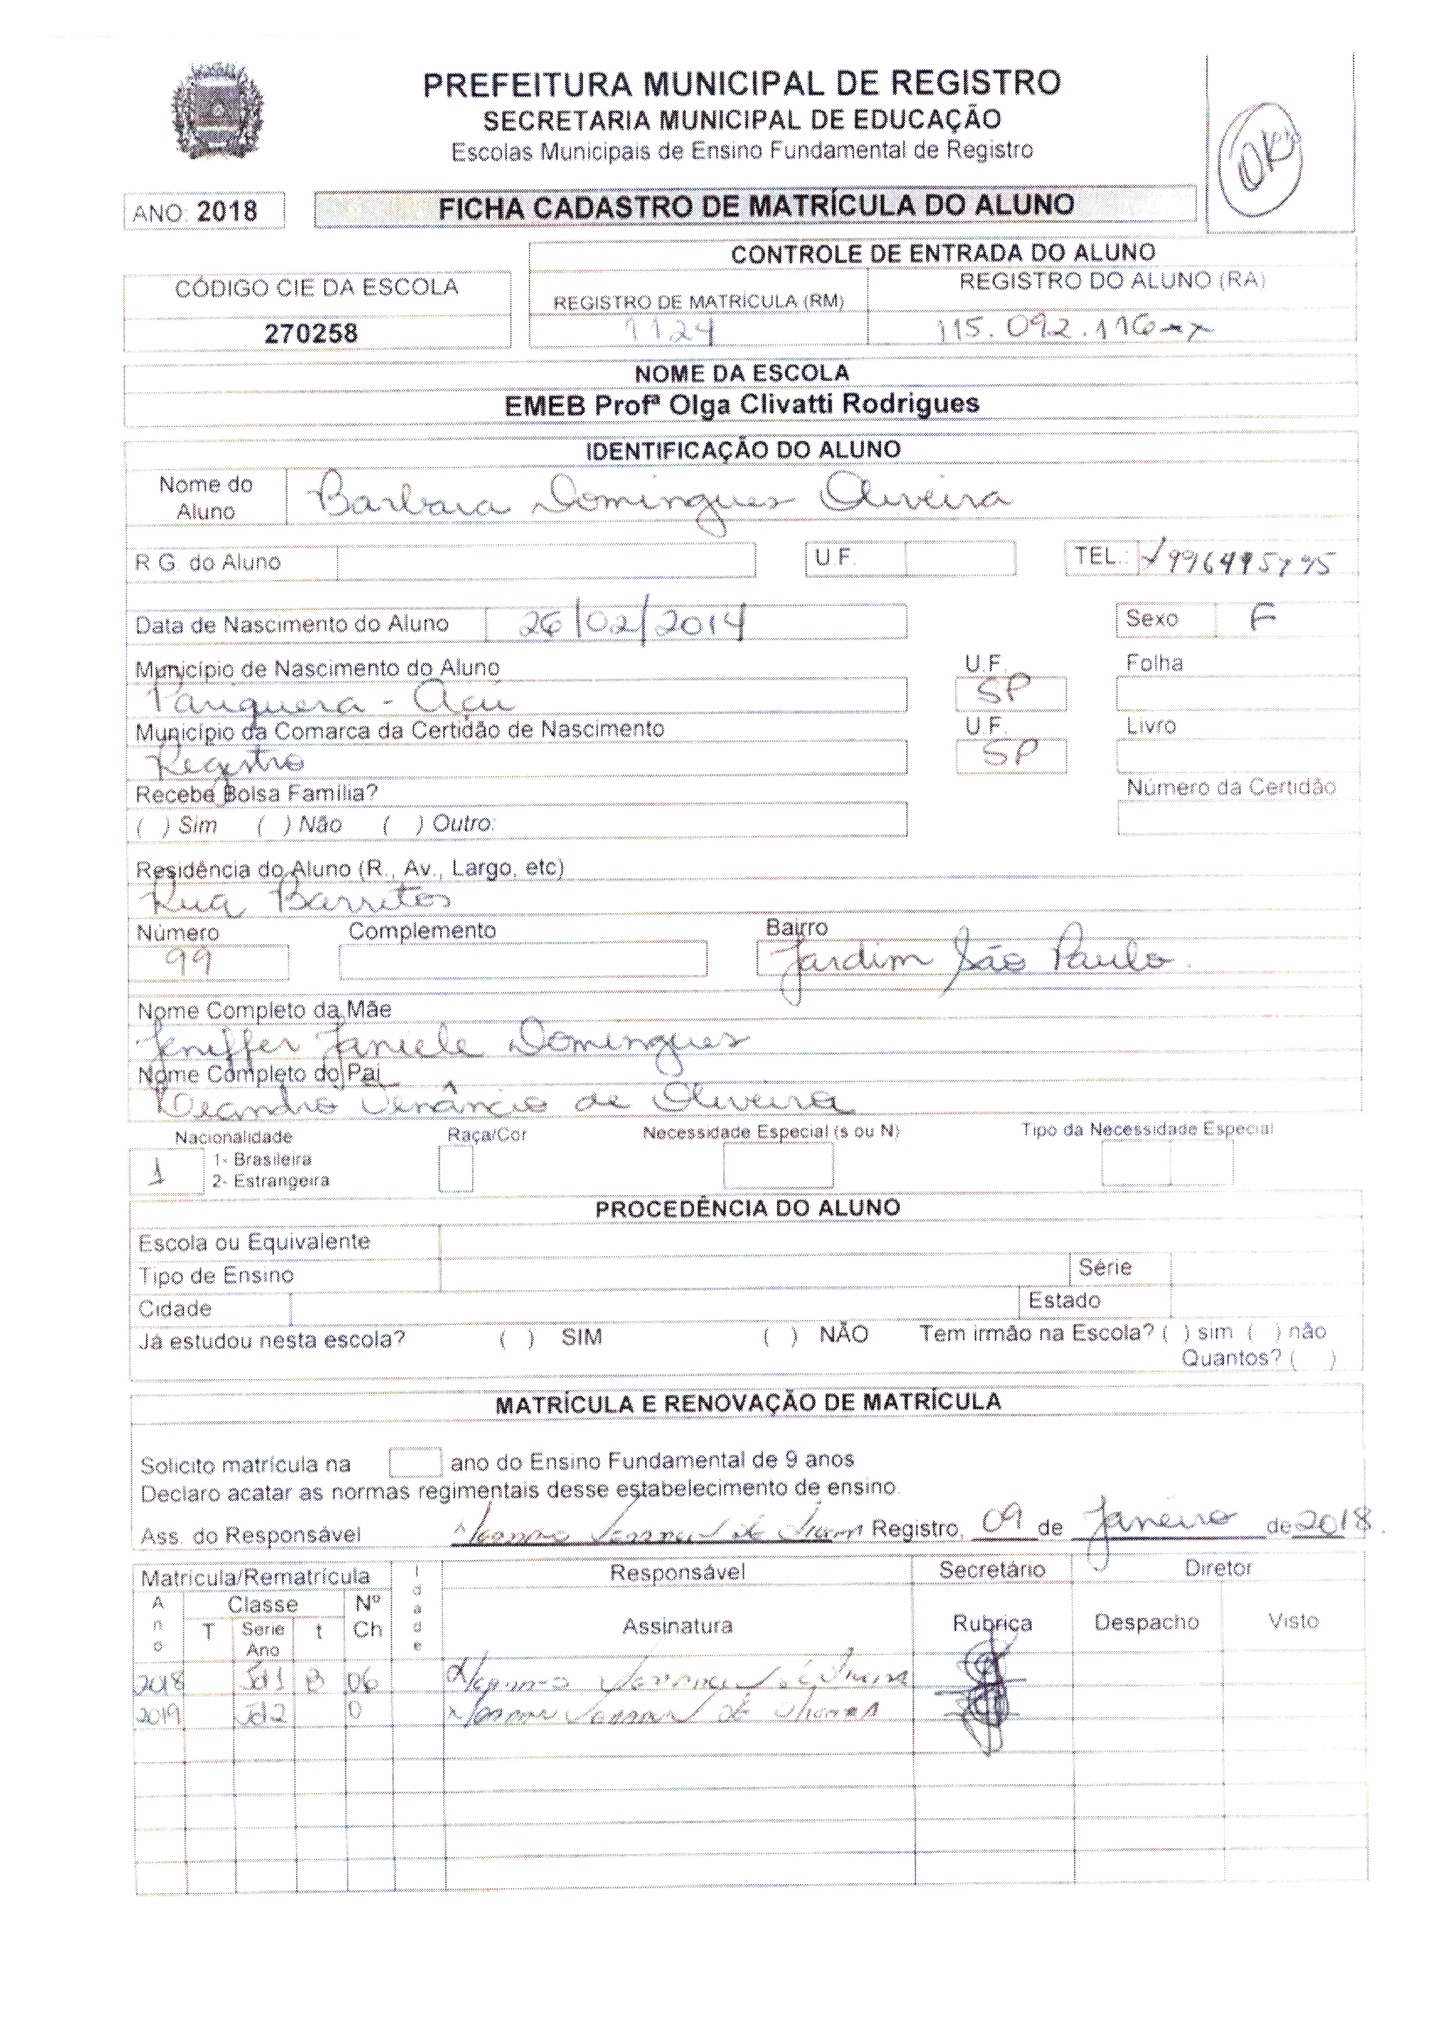 PREFEITURA MUNICIPAL DE REGISTRO
SECRETARIA MUNICIPAL DE EDUCAÇÃO
Escolas Municipais de Ensino Fundamental de Registro
OK
ANO: 2018
FICHA CADASTRO DE MATRÍCULA DO ALUNO
CONTROLE DE ENTRADA DO ALUNO
CÓDIGO CIE DA ESCOLA
REGISTRO DE MATRÍCULA (RM)
REGISTRO DO ALUNO (RA)
270258
1124
115.092.116-x
NOME DA ESCOLA
EMEB Profª Olga Clivatti Rodrigues
IDENTIFICAÇÃO DO ALUNO
Nome do Aluno Barbara Domingues Oliveira
R G. do Aluno U.F. TEL.:
Data de Nascimento do Aluno 26/02/2014 Sexo F
Município de Nascimento do Aluno U.F. Folha
Pariquera - Açú SP
Município da Comarca da Certidão de Nascimento U.F. Livro
Registro SP
Recebe Bolsa Família? Número da Certidão
( ) Sim ( ) Não ( ) Outro:
Residência do Aluno (R., Av., Largo, etc)
Rua Barritos
Número Complemento Bairro
99 Jardim São Paulo.
Nome Completo da Mãe
Jeniffer Janiele Domingues
Nome Completo do Pai
Leandro Venâncio de Oliveira
Nacionalidade Raça/Cor Necessidade Especial (s ou N) Tipo da Necessidade Especial
1 1- Brasileira
2- Estrangeira
PROCEDÊNCIA DO ALUNO
Escola ou Equivalente
Tipo de Ensino Série
Cidade Estado
Já estudou nesta escola? ( ) SIM ( ) NÃO Tem irmão na Escola? ( ) sim ( ) não
Quantos? ( )
MATRÍCULA E RENOVAÇÃO DE MATRÍCULA
Solicito matrícula na ano do Ensino Fundamental de 9 anos
Declaro acatar as normas regimentais desse estabelecimento de ensino.
Ass. do Responsável Registro, 09 de Janeiro de 2018.
Matricula/Rematrícula Idade Responsável Secretário Diretor
Ano Classe Nº
T Serie Ano t Ch Assinatura Rubrica Despacho Visto
2018 Jd1 B 06
2019 Jd2 0